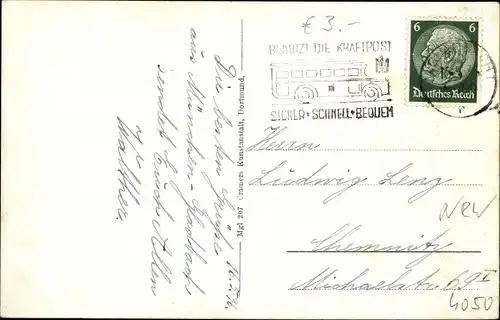 € 3.-
BENUTZT DIE KRAFTPOST
SICHER + SCHNELL + BEQUEM
6 6
Deutsches Reich
Die besten Grüße
aus München-Gladbach
sendet Euch Allen
Walther.
Mgl 207 Cramers Kunstanstalt, Dortmund.
Herrn
Ludwig Lenz
Chemnitz
Michaelstr. 69 I
NRW
4050